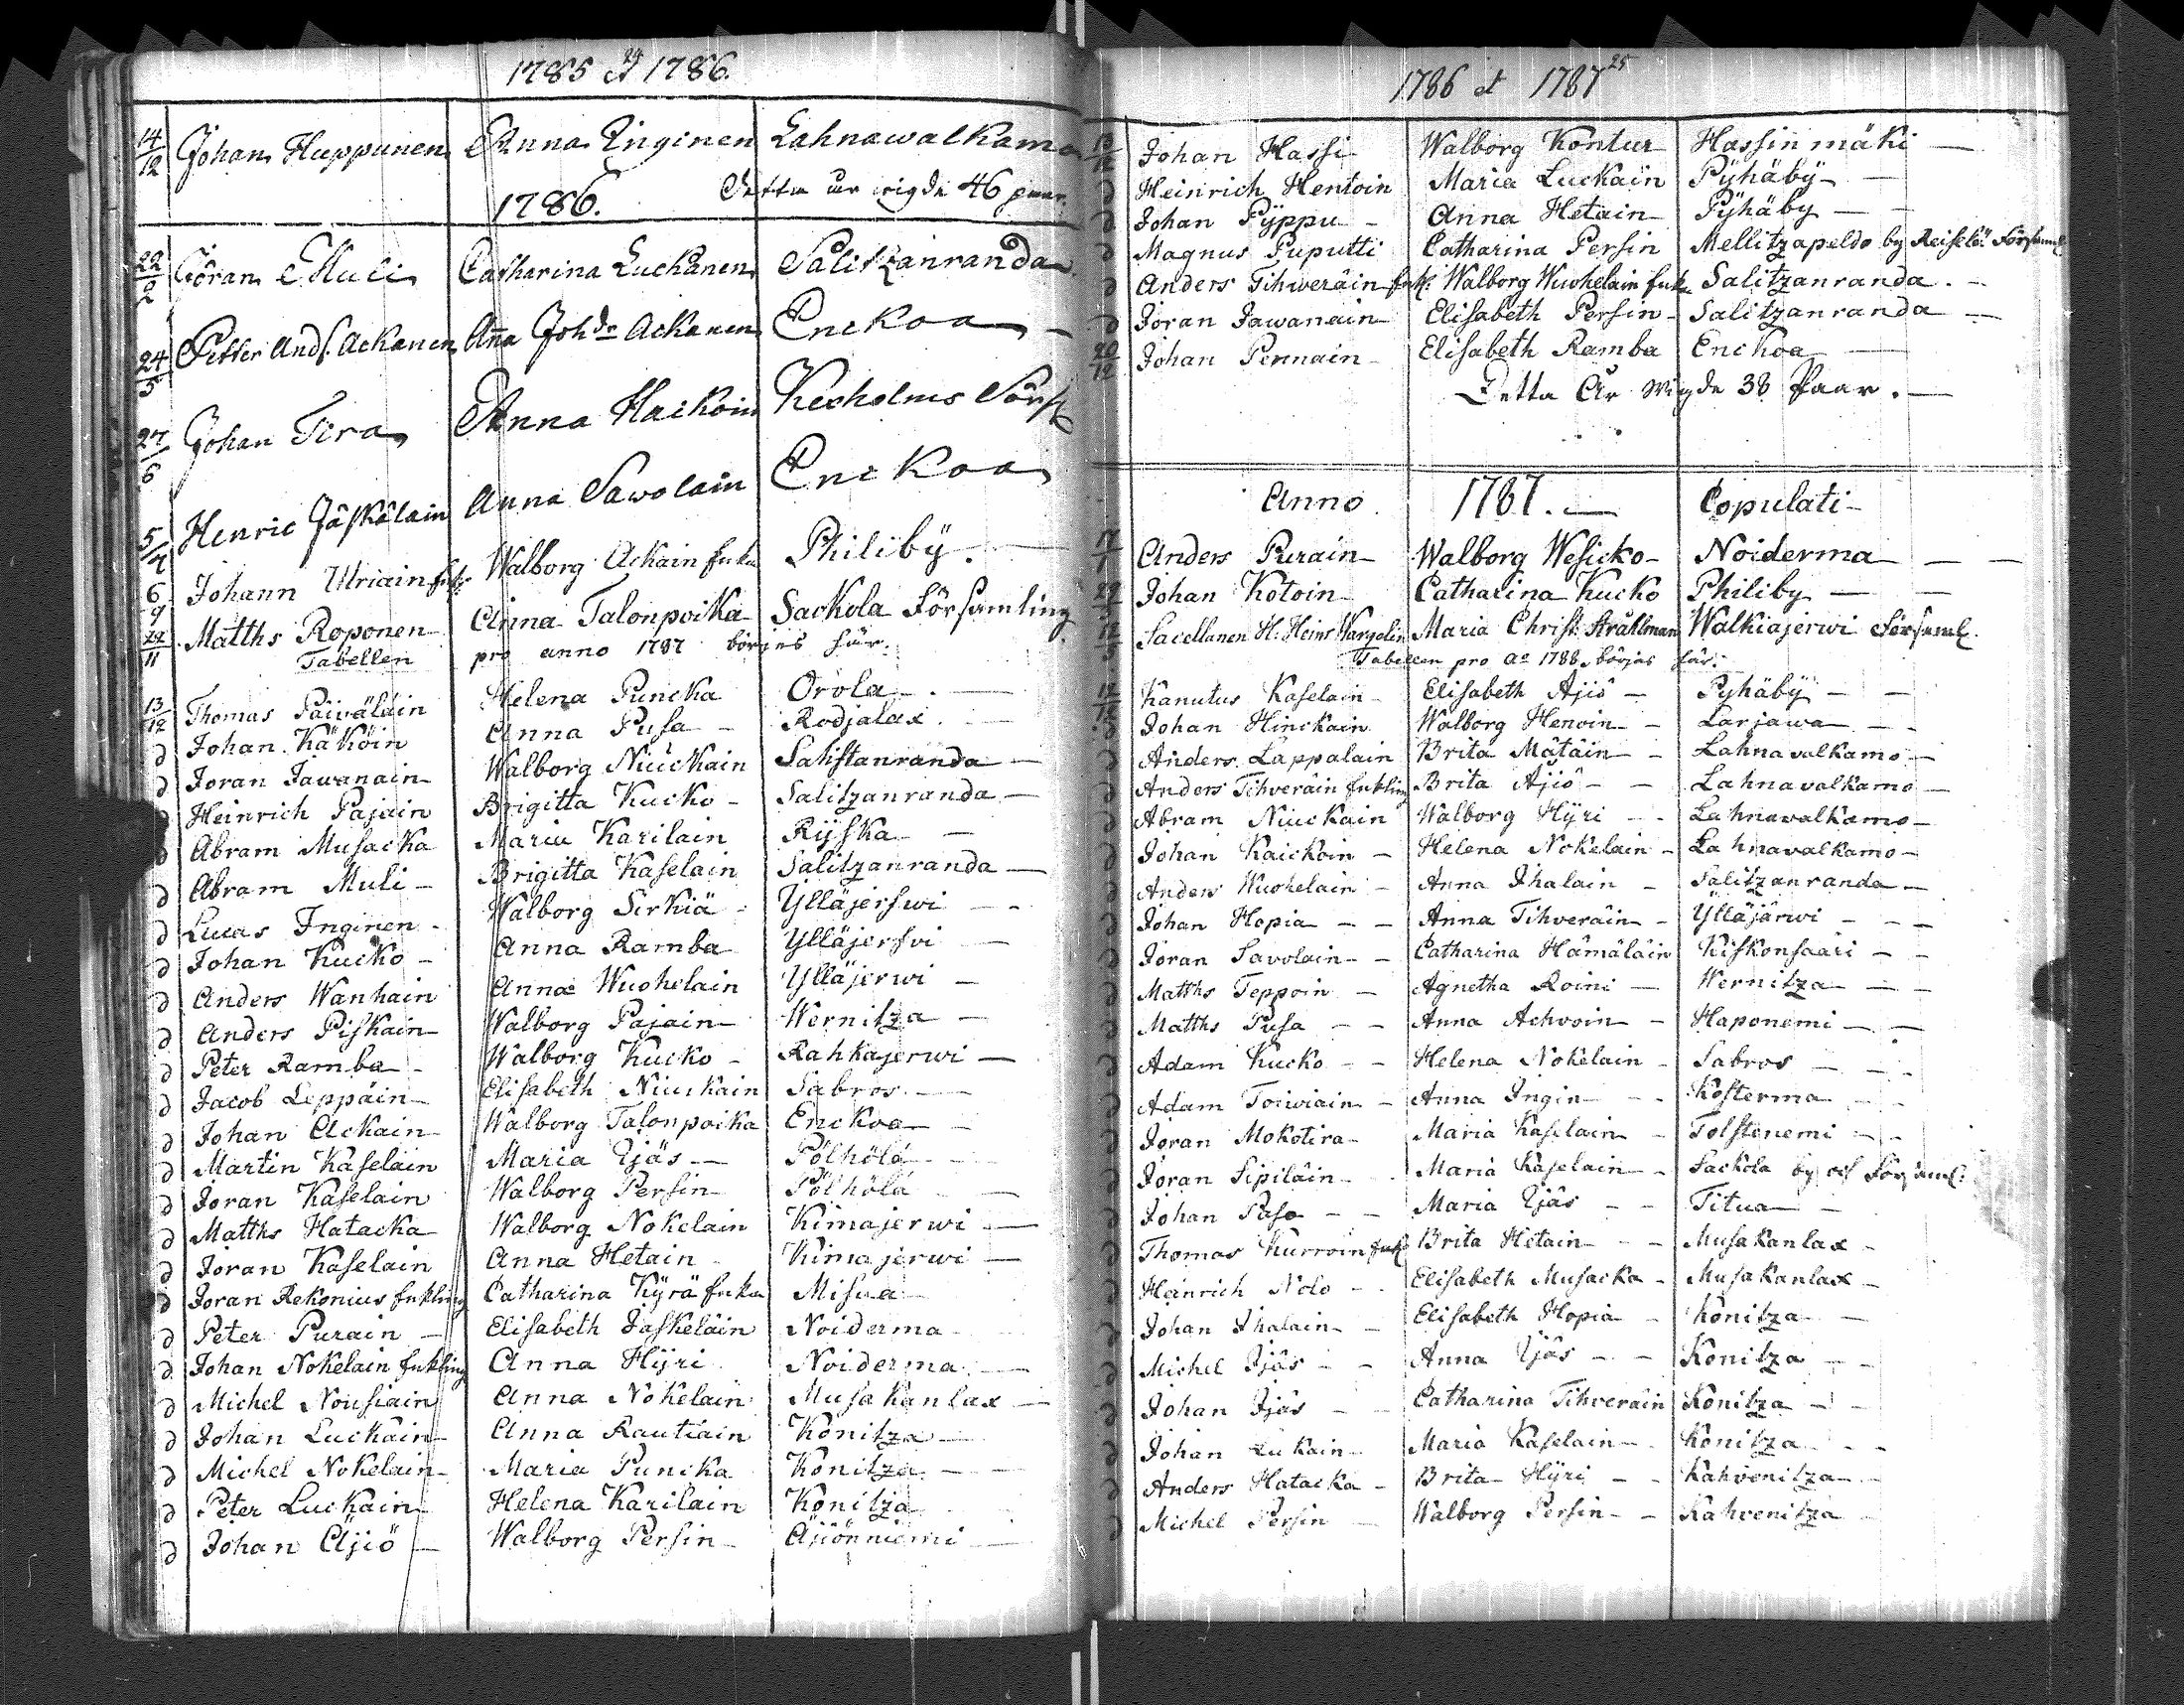 24
1785 et 1786.
14/12 Johan Huppunen Anna Inginen Lahnawalkama
1786. Detta år wigde 46 paar.
22/2 Göran Muli Catharina Luckanen Salitzanranda
24/5 Petter Ands. Ackanen Anna Johdr Ackanen Enckoa
27/6 Johan Tira Anna Haikoin Kexholms Förs
5/7 Henric Jäskeläin Anna Sawolain Enckoa
6/9 Johann Uriain Walborg Ackain enka Philiby.
24/11 Matths Roponen Anna Talonpoika Sackola Församling
Tabellen pro anno 1787 börjas här.
13/12 Thomas Päiväläin Helena Puncka Orola
d Johan Käköin Anna Pusa Rodjalax.
d Joran Jawanain Walborg Niuckain Salistanranda
d Heinrich Pajain Brigitta Kucko Salitzanranda
d Abram Musacka Maria Karilain Rijska
d Abram Muli Brigitta Kaselain Salitzanranda
d Lucas Inginen Walborg Sirkiä Ylläjerfwi
d Johan Kucko Anna Ramba Ylläjerfvi
d Anders Wanhain Anna Wuohelain Ylläjerwi
d Anders Piskain Walborg Pajain Wernitza
d Peter Ramba Walborg Kucko Rahkajerwi
d Jacob Leppäin Elisabeth Niuckain Sabros
d Johan Ackain Walborg Talonpoika Enckoa
d Martin Kaselain Maria Äjäs Pölhölä
d Joran Kaselain Walborg Persin Pölhölä
d Matths Hatacka Walborg Nokelain Kimajerwi
d Joran Kaselain Anna Hetain Kimajerwi
d Joran Rekonius enkling Catharina Kyrä enka Misua
d Peter Purain Elisabeth Jaskeläin Noiderma
d Johan Nokelain enkling Anna Hyri Noiderma
d Michel Nousiain Anna Nokelain Musakanlax
d Johan Luckain Anna Rautiain Konitza
d Michel Nokelain Maria Puncka Konitza
d Peter Luckain Helena Karilain Konitza
d Johan Äjiö Walborg Persin Äjiönniemi
25
1786 et 1787
Johan Hassi Walborg Kontur Hassinmäki
d Heinrich Hentoin Maria Luckain Pyhäby
d Johan Pyppu Anna Hetain Pyhäby
d Magnus Puputti Catharina Persin Mellitzapeldo by Reiselä
d Anders Tihweräin Walborg Wuohelain Salitzanranda.
d Joran Jawanain Elisabeth Persin Salitzanranda
20/12 Johan Pennain Elisabeth Ramba Enckoa
Detta År Wigde 38 Paar.
Anno 1787. Copulati
Anders Purain Walborg Wesicko Noiderma
Johan Kotoin Catharina Kucko Philiby
Sacellanen H. Heinr Wargelin Maria Christ. Stråhlman Walkiajerwi Församl.
Tabellen pro ao 1788 börjas här.
Kanutus Kaselain Elisabeth Äjiö Pyhäby
Johan Hinckain Walborg Henoin Larjawa
d Anders Lappalain Brita Mätäin Lahnavalkamo
d Anders Tihveräin enkling Brita Äjiö Lahnavalkamo
d Abram Niuckain Walborg Hyri Lahnavalkamo
d Johan Kaickoin Helena Nokelain Lahnavalkamo
d Anders Wuohelain Anna Ihalain Salitzanranda
d Johan Hopia Anna Tihveräin Ylläjärwi
d Joran Savolain Catharina Hämäläin Kiskonsaari
d Matths Teppoin Agnetha Roini Wernitza
d Matths Pusa Anna Achvoin Haponemi
d Adam Kucko Helena Nokelain Sabros
d Adam Toiwiain Anna Ingin Kosterma
d Joran Mokotira Maria Kaselain Tolstenemi
d Joran Sipiläin Maria Kaselain Sackola by och Församl:
d Johan Paso Maria Äjäs Titua
d Thomas Kurroin Brita Hetain Musakanlax
d Heinrich Nolo Elisabeth Musacka Musakanlax
d Johan Ihalain Elisabeth Hopia Konitza
d Michel Äjäs Anna Äjäs Konitza
d Johan Äjäs Catharina Tihveräin Konitza
d Johan Lukain Maria Kaselain Konitza
d Anders Hatacka Brita Hyri Kahvenitza
d Michel Persin Walborg Persin Kahvenitza